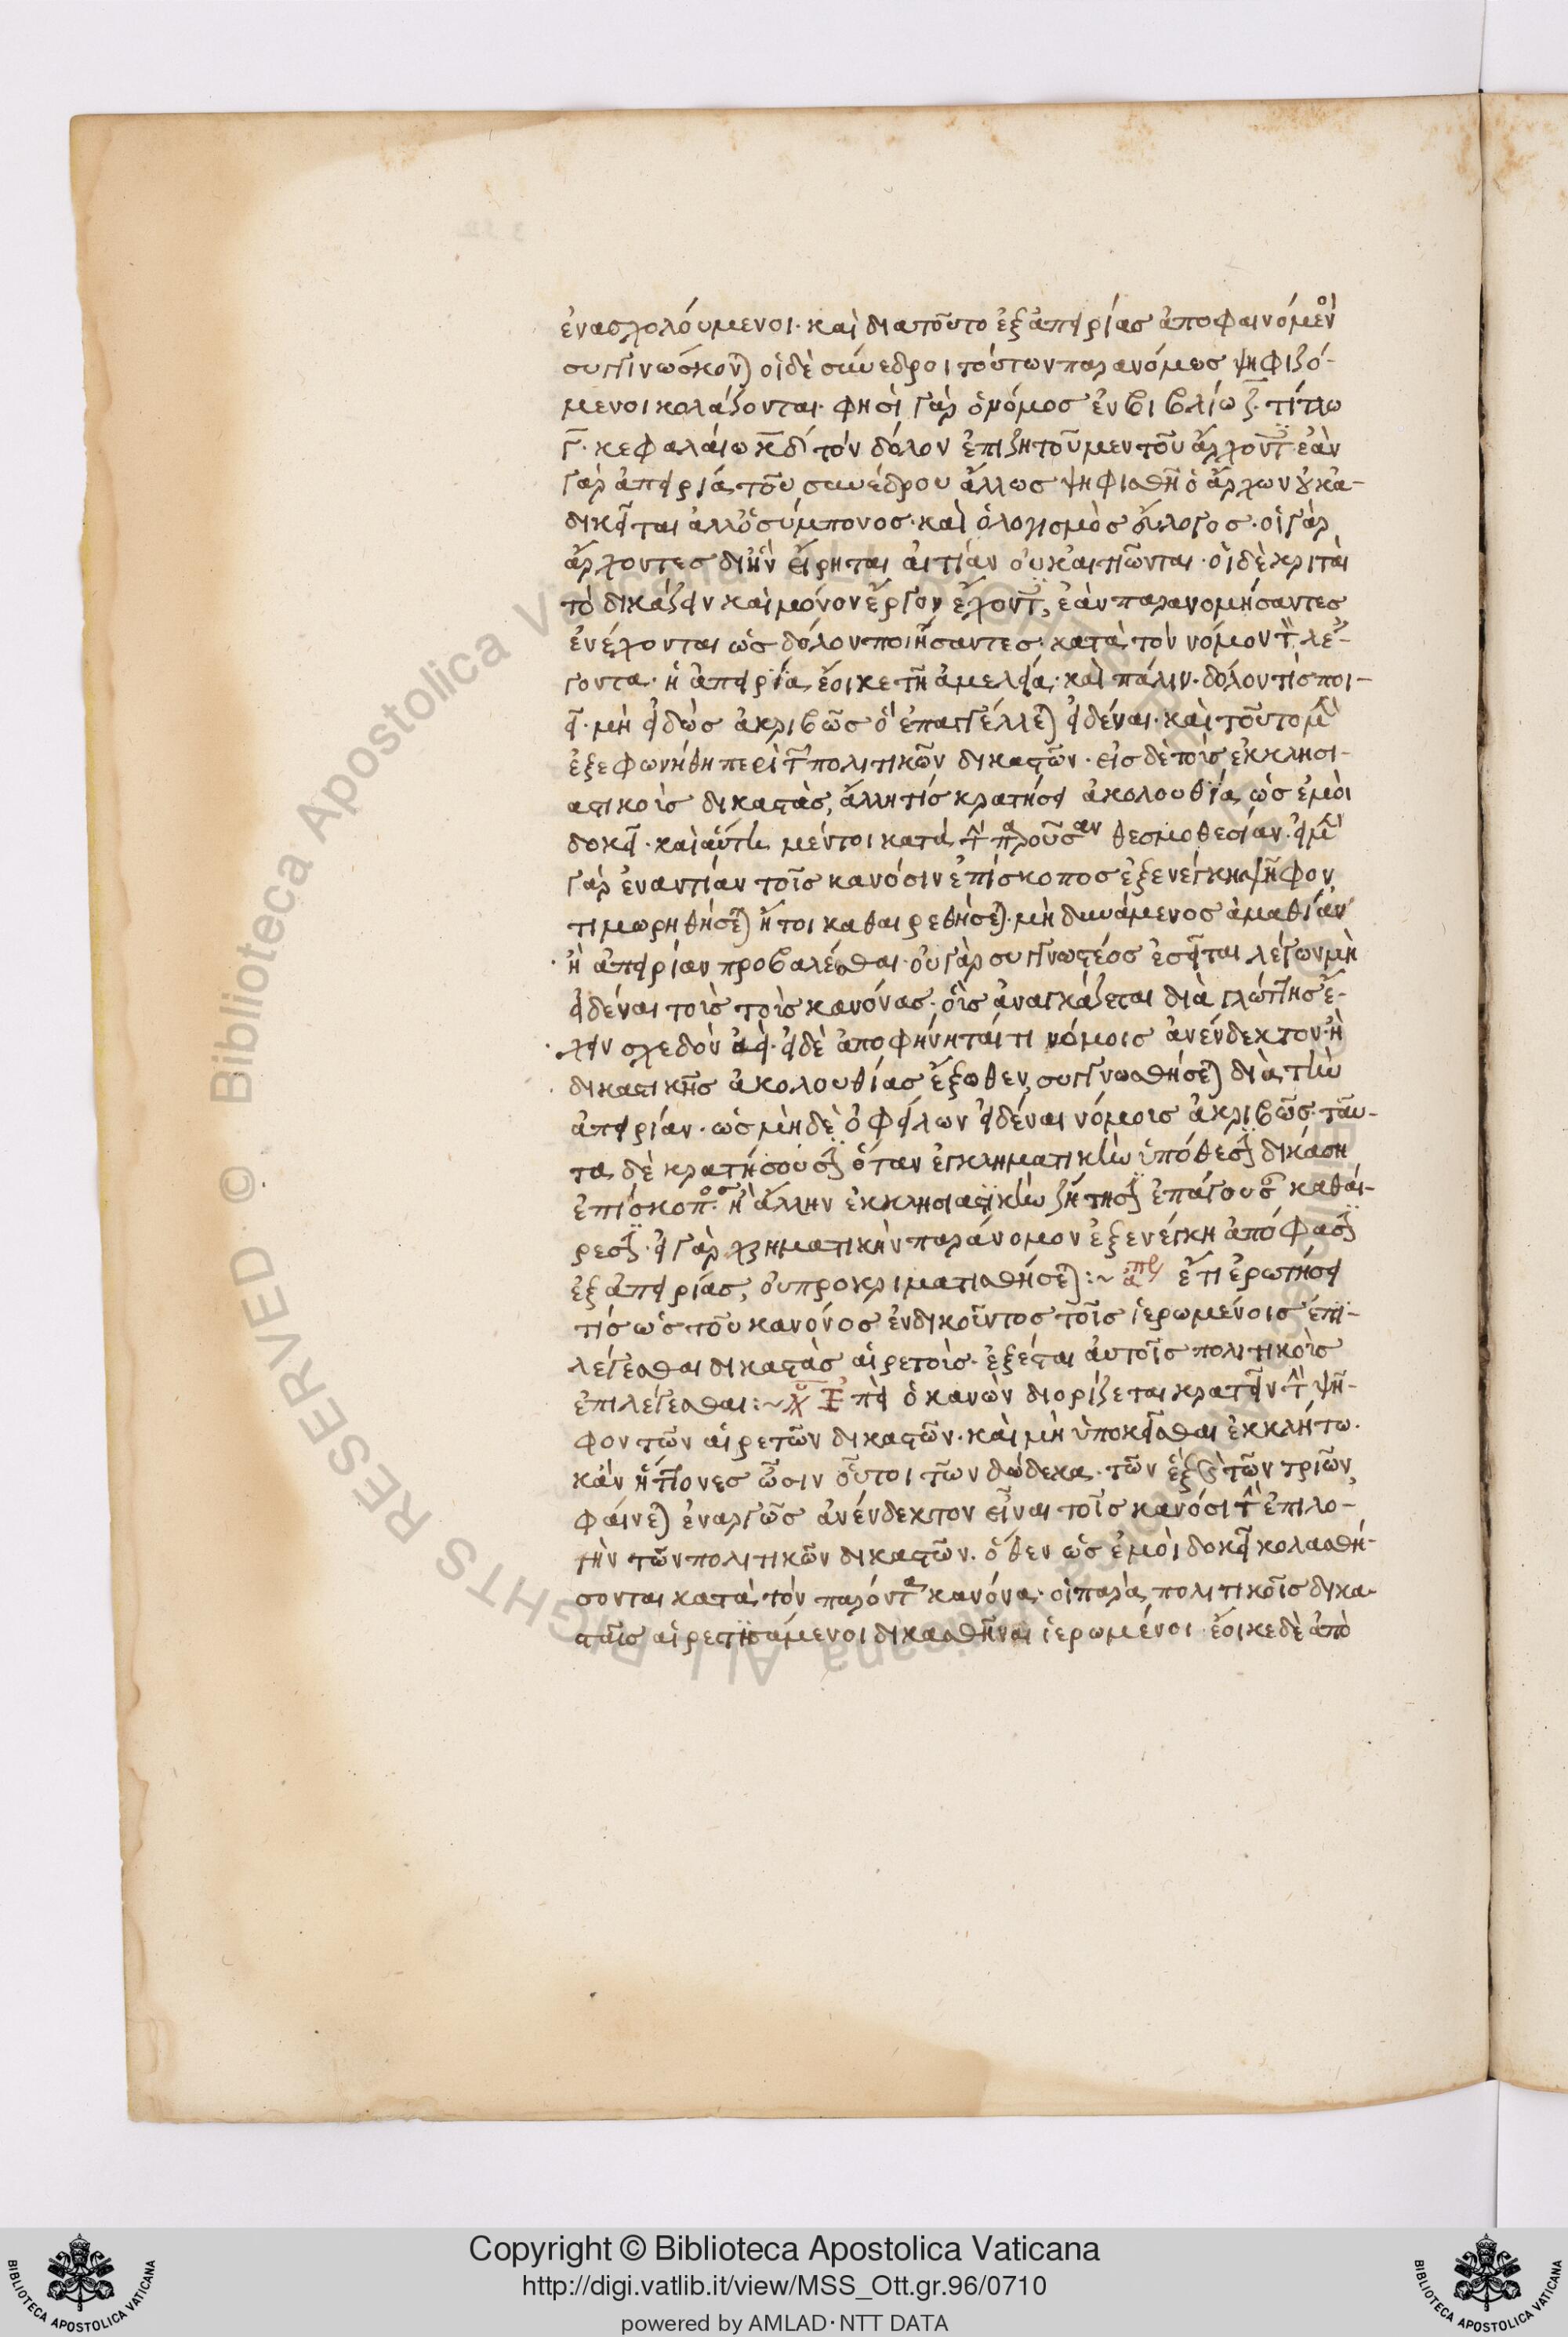 ἐνασχολούμενοι· καὶ διατοῦτο ἐξ ἀπειρίας ἀποφαινόμενοι
συγγινώσκονται οἱ δὲ σύνεδροι τούτων παρανόμως ψηφιζό-
μενοι κολάζονται· φησὶ γὰρ ὁ νόμος ἐν βιβλίω ζ· τίτλω
γ· κεφαλαίω κδ τὸν δόλον ἐπιζητοῦμεν τοῦ ἄρχοντος· ἐὰν
γὰρ ἀπειρία τοῦ συνέδρου ἄλλως ψηφισθῆ ὁ ἄρχων οὐκ ἀ-
δικεῖται ἀλλ' ὁ σύμπονος· καὶ ὁ λογισμὸς εὔλογος· οἱ γὰρ
ἄρχοντες δι' ἣν εἴρηται αἰτίαν οὐκ αἰτιῶνται· οἱ δὲ κριταὶ
τὸ δικάζειν καὶ μόνον ἔργον ἔχοντες, ἐὰν παρανομήσαντες
ἐνέχονται ὡς δόλον ποιήσαντες· κατὰ τὸν νόμον τὸν λέ-
γοντα· ἡ ἀπειρία ἔοικε τῆ ἀμελεία· καὶ πάλιν· δόλον τίς ποι-
εῖ· μὴ εἰδὼς ἀκριβῶς ὃ ἐπαγγέλλεται εἰδέναι· καὶ τοῦτο μὲν
ἐξεφωνήθη περὶ τῶν πολιτικῶν δικαστῶν· εἰς δὲ τοὺς ἐκκλησι-
αστικοὺς δικαστὰς, ἄλλη τίς κρατήσει ἀκολουθία ὡς ἐμοὶ
δοκεῖ· καὶ αὕτη μέντοι κατὰ τὴν παροῦσαν θεσμοθεσίαν· εἰ μὲν
γὰρ ἐναντίαν τοῖς κανόσιν ἐπίσκοπος ἐξενέγκη ψῆφον
τιμωρηθήσεται ἤτοι καθαιρεθήσεται· μὴ δυνάμενος ἀμαθίαν
ἢ ἀπειρίαν προβαλέσθαι· οὐ γὰρ συγγνωστέος ἐσεῖται λέγων μὴ
εἰδέναι τοὺς τοὺς κανόνας· οὓς ἀναγκάζεται διὰ γλώττης ἔ-
χειν σχεδὸν ἀεὶ· εἰ δὲ ἀποφήνηταί τι νόμοις ἀνένδεκτον· ἢ
δικαστικῆς ἀκολουθίας ἔξωθεν, συγγνωσθήσεται διὰ τὴν
ἀπειρίαν· ὡς μὴ δὲ ὀφείλων εἰδέναι νόμοις ἀκριβῶς· ταῦ-
τα δὲ κρατήσουσιν ὅταν ἐγκληματικὴν ὑπόθεσιν δικάση
ἐπίσκοπος· ἢ ἄλλην ἐκκλησιαστικὴν ζήτησιν ἐπάγουσαν καθαί-
ρεσιν· εἰ γὰρ χρηματικὴν παράνομον ἐξενέγκη ἀπόφασιν
ἐξ ἀπειρίας, οὐ προκριματισθήσεται :~ ἔτι ἐρωτήσει
τίς ὡς τοῦ κανόνος ἐνδικοῦντος τοῖς ἱερωμένοις ἐπι-
λέγεσθαι δικαστὰς αἱρετοὺς· ἐξέσται αὐτοῖς πολιτικοὺς
ἐπιλέγεσθαι :~ Ἐπεὶ ὁ κανὼν διορίζεται κρατεῖν τὴν ψῆ-
φον τῶν αἱρετῶν δικαστῶν· καὶ μὴ ὑποκεῖσθαι ἐκκλήτω·
κἂν ἥττονες ὦσιν οὗτοι τῶν δώδεκα· τῶν ἓξ καὶ τῶν τριῶν
φαίνεται ἐναργῶς ἀνένδεκτον εἶναι τοῖς κανόσι τὴν ἐπιλο-
γὴν τῶν πολιτικῶν δικαστῶν· ὅθεν ὡς ἐμοὶ δοκεῖ κολασθή-
σονται κατὰ τὸν παρόντα κανόνα· οἱ παρὰ πολιτικοῖς δικα-
σταῖς αἱρετισάμενοι δικασθῆναι ἱερωμένοι· ἔοικε δὲ ἀπὸ
Copyright © Biblioteca Apostolica Vaticana
http://digi.vatlib.it/view/MSS_Ott.gr.96/0710
powered by AMLAD·NTT DATA